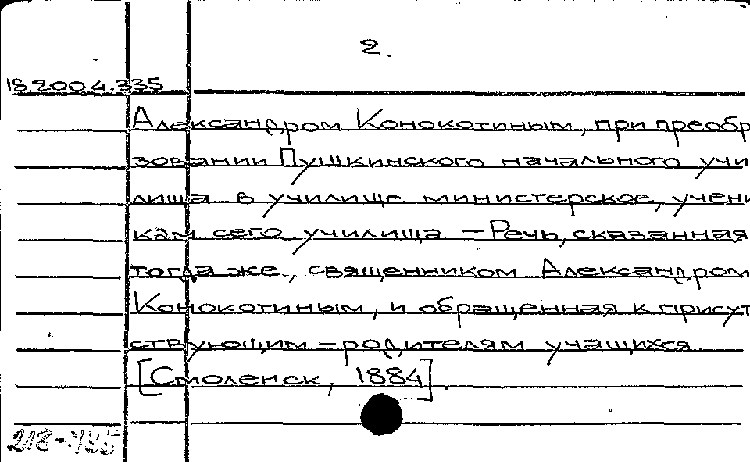 2.
18.200.4.335
Александром Конокотиным, при преобр
зовании Пушкинского начального учи
лища в училище министерское, учени
кам сего училища – Речь, сказанная
тогда же, священником Александром
Конокотиным, и обращенная к присут
ствующим – родителям учащихся.
[Смоленск, 1884].